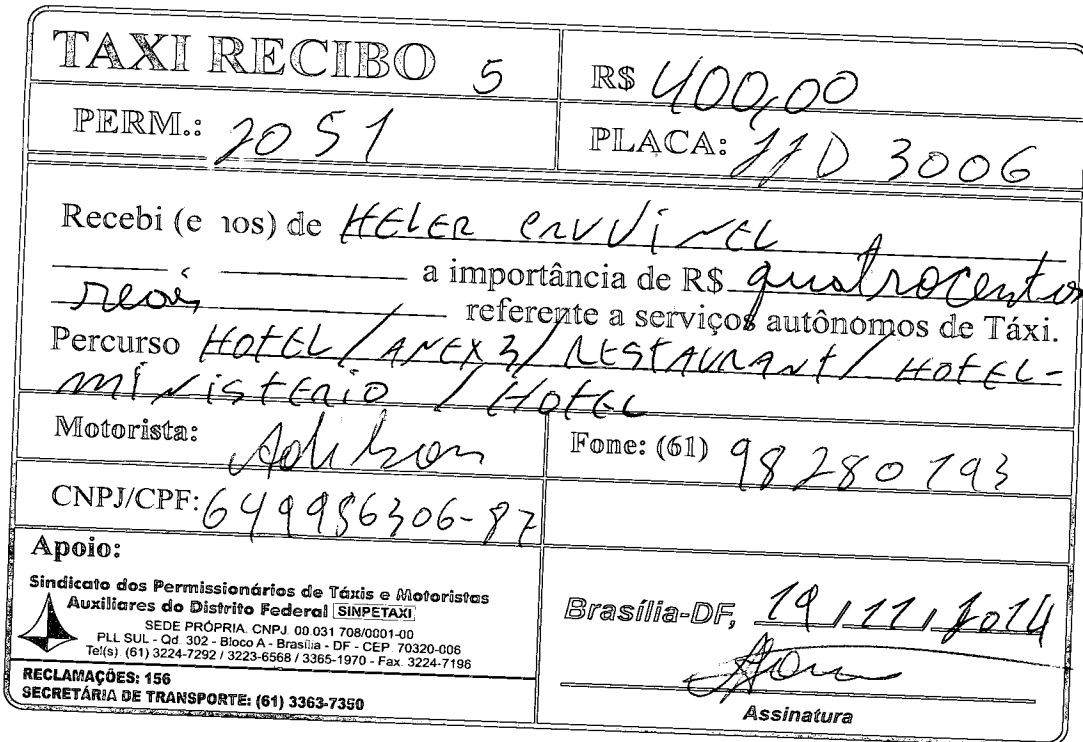 TAXI RECIBO 5
R$ 400,00
PERM.: 2051
PLACA: JJD 3006
Recebi (e mos) de HELER
a importância de R$ quatrocentos
reais referente a serviços autônomos de Táxi.
Percurso HOTEL / ANEX 3 / RESTAURANT / HOTEL -
MINISTERIO / HOTEL
Motorista: Adilson
Fone: (61) 98280793
CNPJ/CPF: 649986306-87
Apoio:
Sindicato dos Permissionários de Táxis e Motoristas
Auxiliares do Distrito Federal SINPETAXI
SEDE PRÓPRIA. CNPJ. 00.031 708/0001-00
PLL SUL - Qd. 302 - Bloco A - Brasília - DF - CEP. 70320-006
Tel(s). (61) 3224-7292 / 3223-6568 / 3365-1970 - Fax. 3224-7196
RECLAMAÇÕES: 156
SECRETÁRIA DE TRANSPORTE: (61) 3363-7350
Brasília-DF, 19 / 11 / 2014
Assinatura